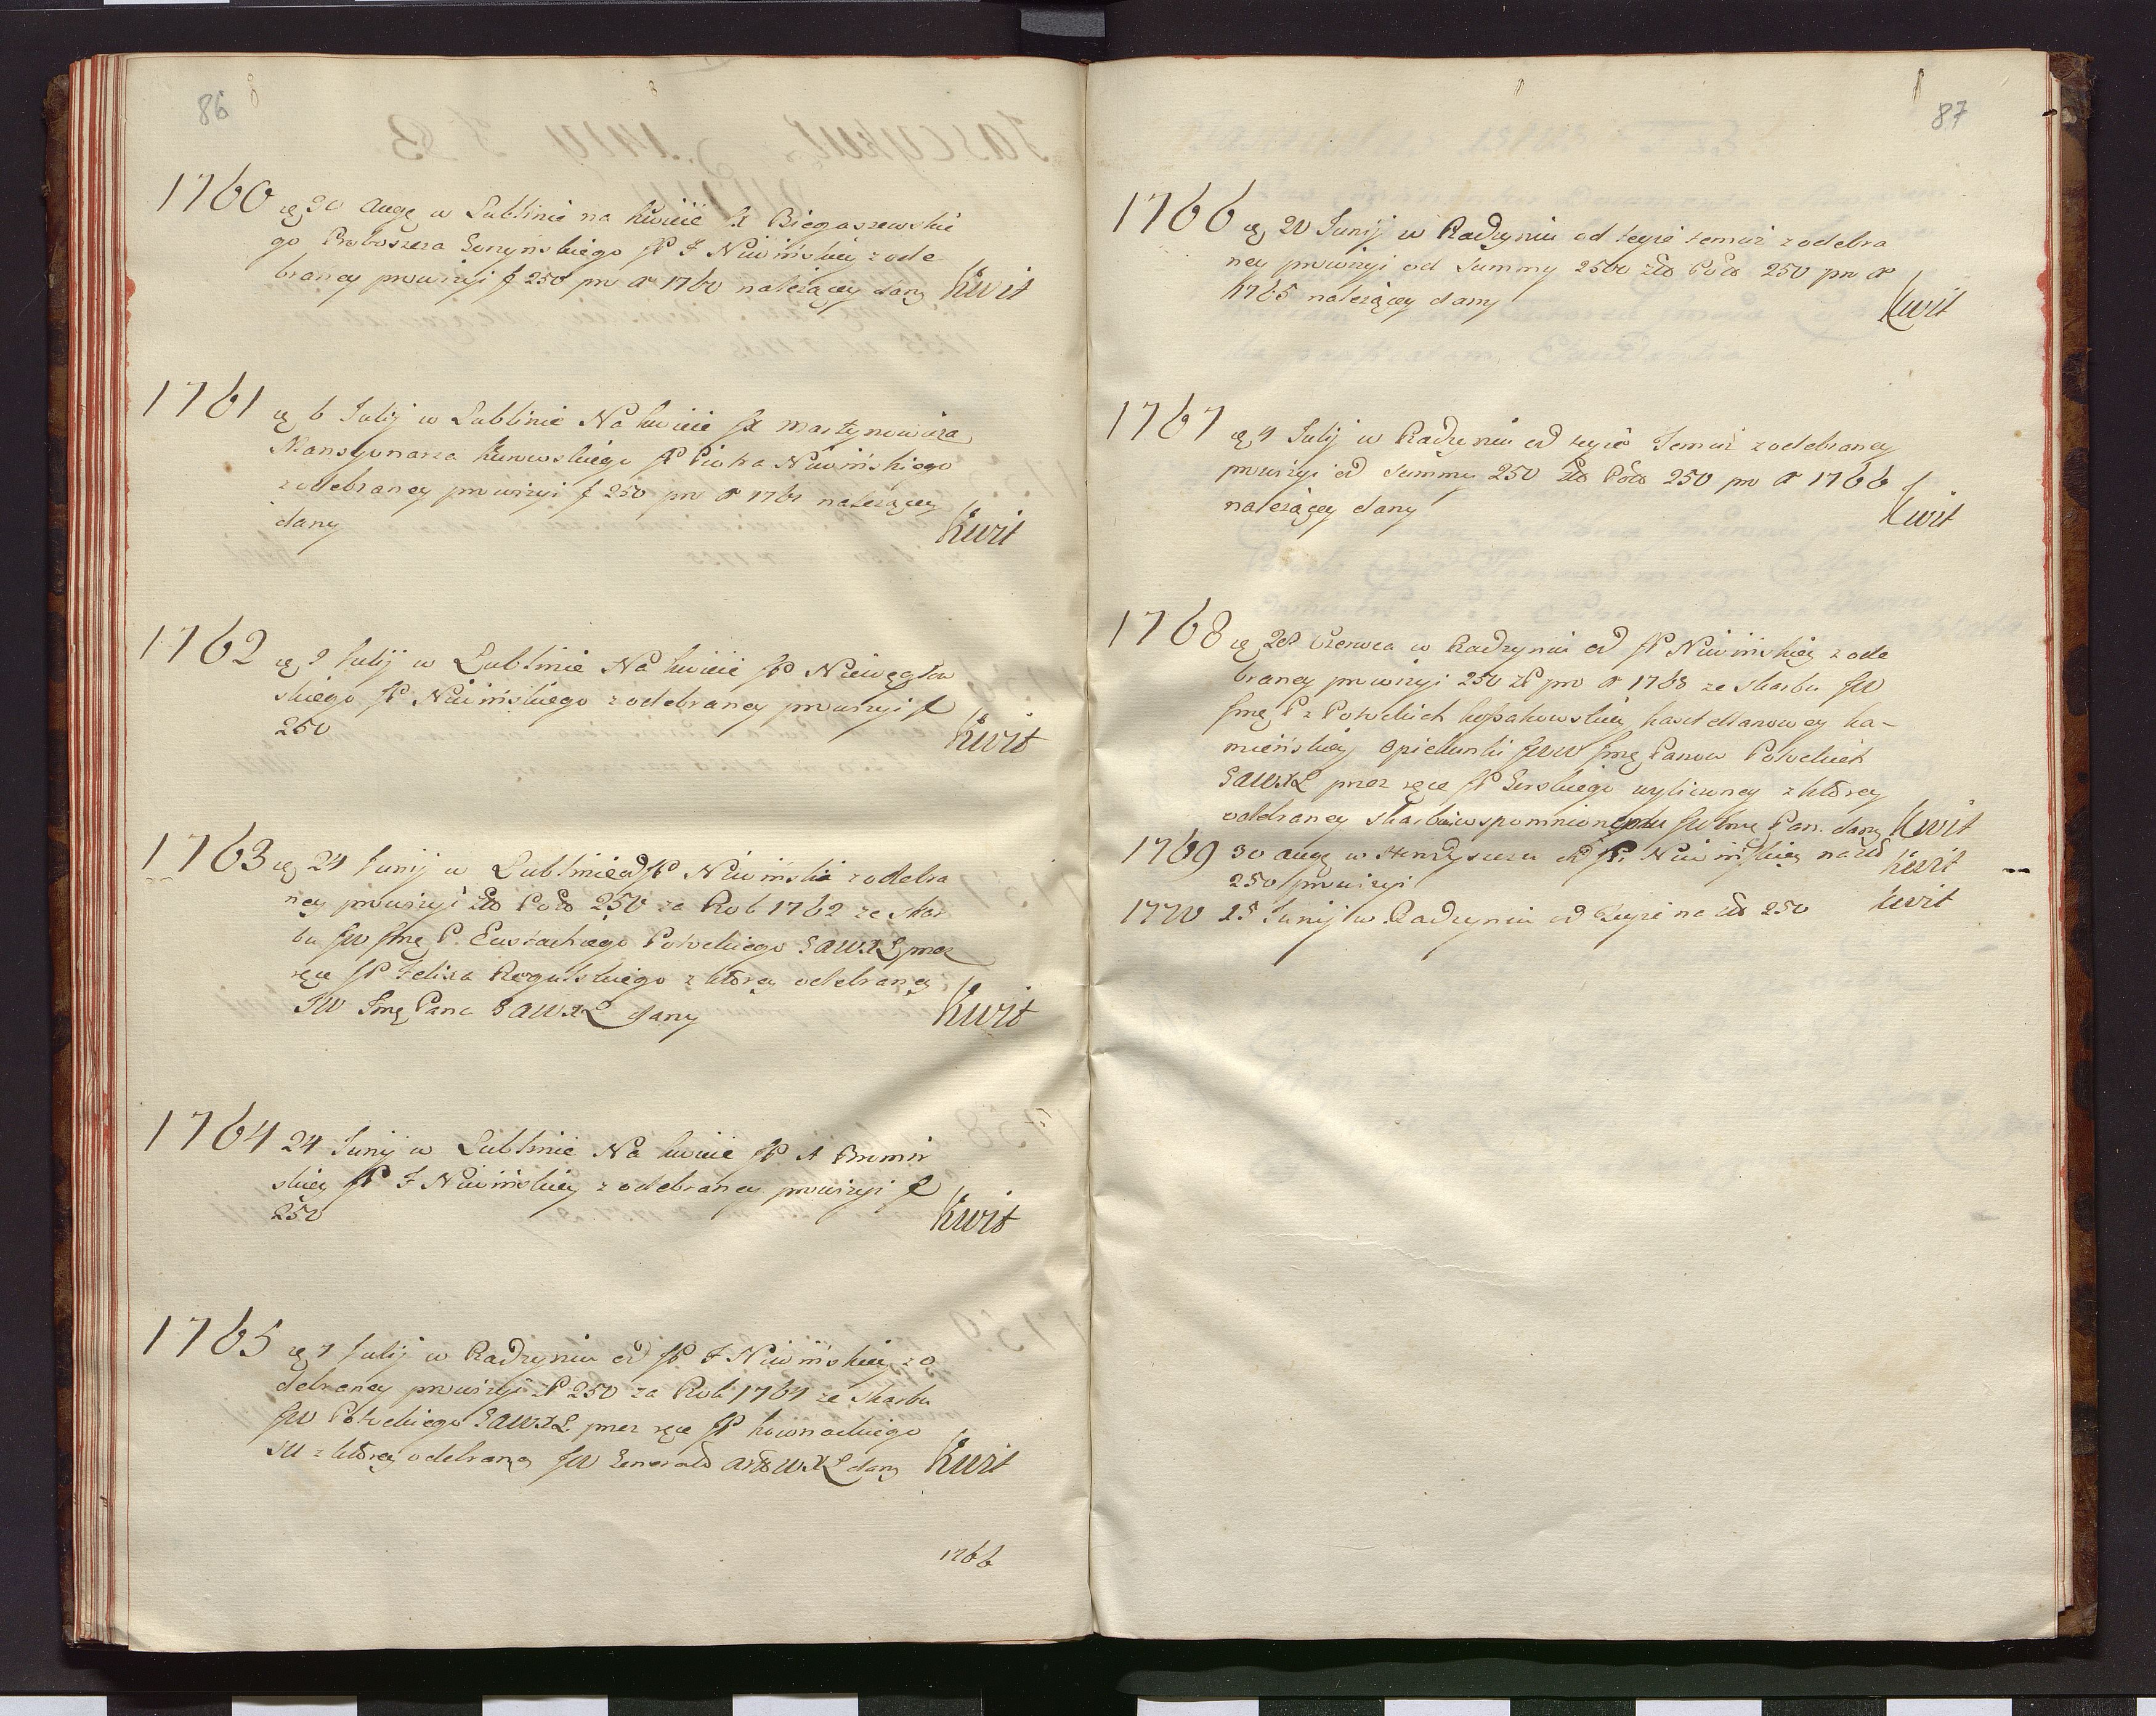 86
1760 30 Aug w Lublinie na kwicie X Biegaszewskie
go Proboszcza JP J Niwińskiey z ode
braney prowizyi f 250 pro Ao 1760 należącey dany Kwit
1761 6 Julij w Lublinie Na kwicie JX Martynowicza
Mansyonarza Kurowskiego JP Piotra Niwińskiego
z odebraney prowizyi f 250 pro Ao 1761 należącey
dany Kwit
1762 9 Julij w Lublinie Na kwicie JP Niewęgłow
skiego JP Niwińskiego z odebraney prowizyi f
250 Kwit
1763 24 Junij w Lublinie od JP Niwińskie z odebra
ney prowizyi 250 za Rok 1762 ze skar
bu JW Jmę P. Eustachiego Potockiego GAWXL przez
ręce JP Felixa Rogulskiego z którey odebraney
JW Jmę Pana GAWXL dany Kwit
1764 24 Junij w Lublinie Na kwicie JP A
skiey JP J Niwińskiey z odebraney prowizyi f
250 Kwit
1765 4 Julij w Radzyniu od JP J Niwińskiey z o
debraney prowizyi zł 250 za Rok 1764 ze skarbu
JW Potockiego GAWXL przez ręce JP Kownackiego
z którey odebraney JW Generała WXL dany Kwit
1766
87
1766 20 Junij w Radzyniu od teyże temuż z odebra
ney prowizyi od Summy 2500 250 pro Ao
1765 należącey dany Kwit
1767 4 Julij w Radzyniu od teyże Temuż z odebraney
prowizyi od Summy 250 250 pro Ao 1766
należącey dany Kwit
1768 Czerwca w Radzyniu od JP Niwińskiey z ode
braney prowizyi 250 zł pro Ao 1768 ze skarbu JW
Jmę P z Potockich Kossakowskiey kasztellanowey ka-
mieńskiey Opiekunki JWW Jmę Panow Potockich
GAWXL przez ręce JP wyliczoney z którey
odebraney skarbowi wspomnionemu JW Jmę Pan. dany Kwit
1769 30 Aug w od JP. Niwińskiey na zł
250 prowizyi Kwit
1770 15 Junij w Radzyniu od Teyże na zł 250 kwit